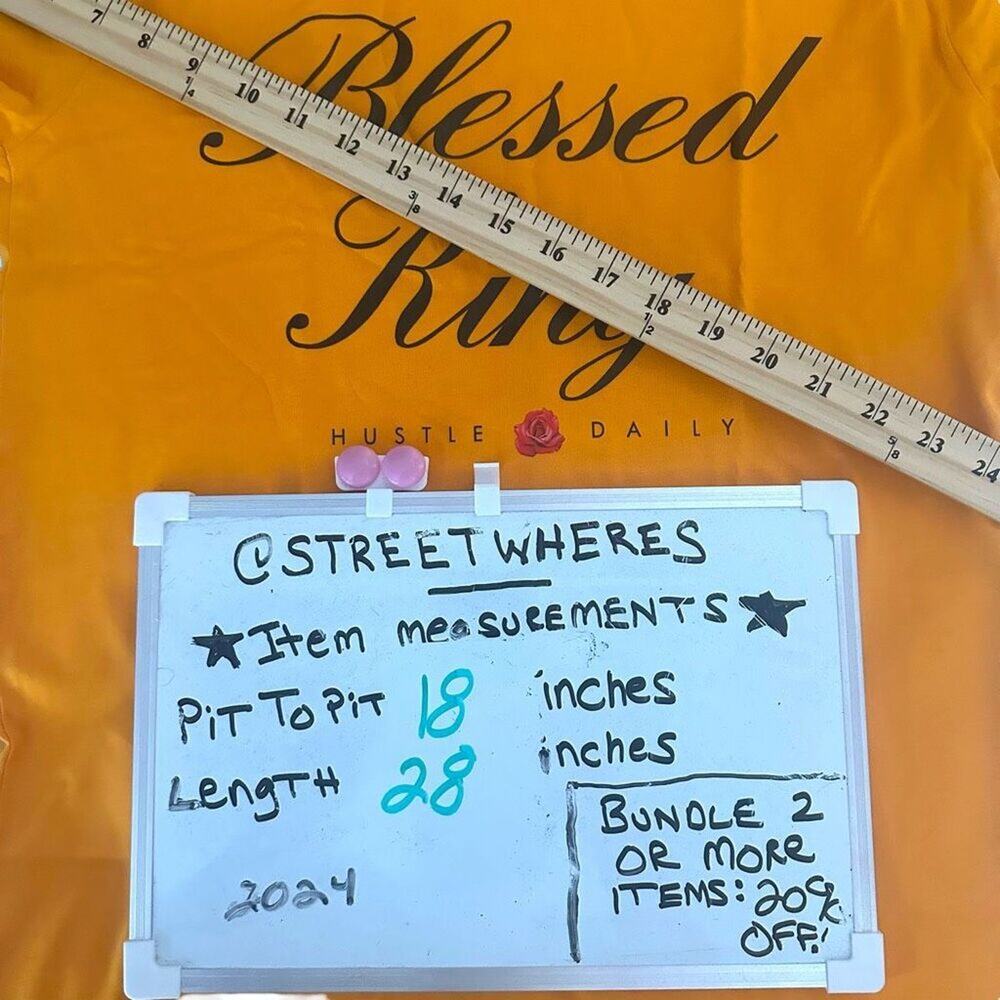 7 8 9 10 11 12 13 14 15 16 17 18 19 20 21 22 23 24
1/4 3/8 1/2 5/8
Blessed
King
HUSTLE DAILY
@STREETWHERES
Item meaSUREMENTS
PiT To PiT 18 inches
LengTH 28 inches
2024
BUNDLE 2
OR MORe
ITEMS: 20%
OFF!